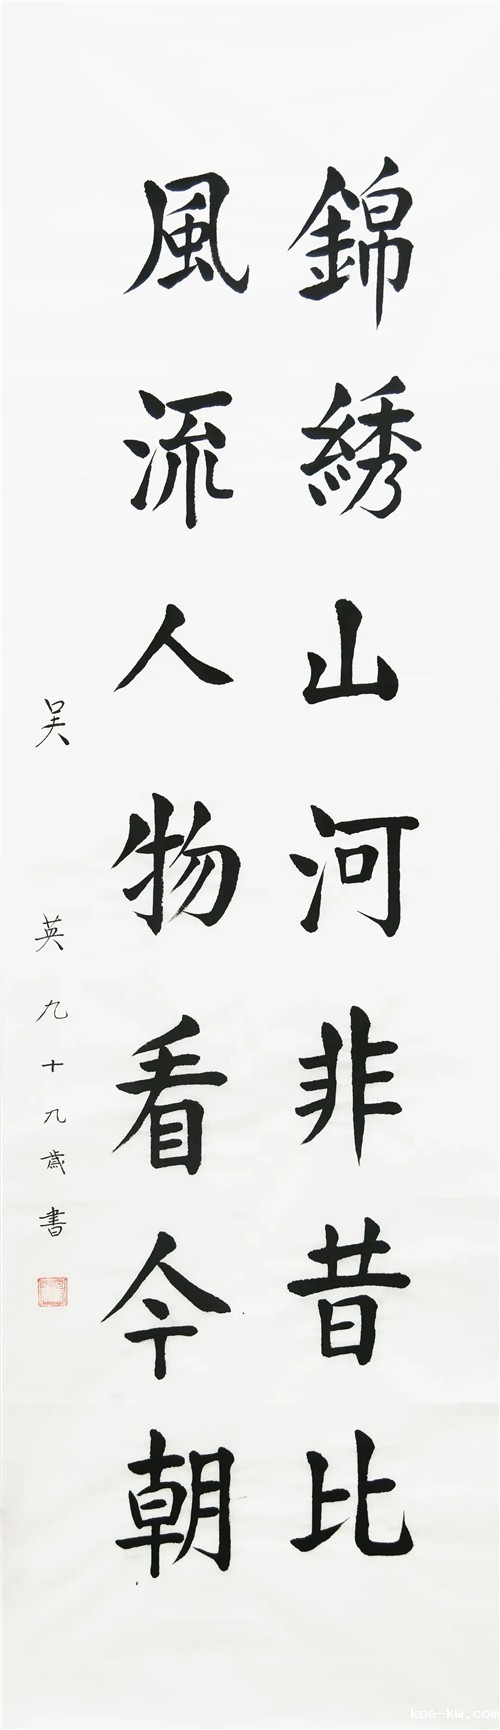 錦綉山河非昔比
風流人物看今朝
吴英九十九歲書
kse-kw.com